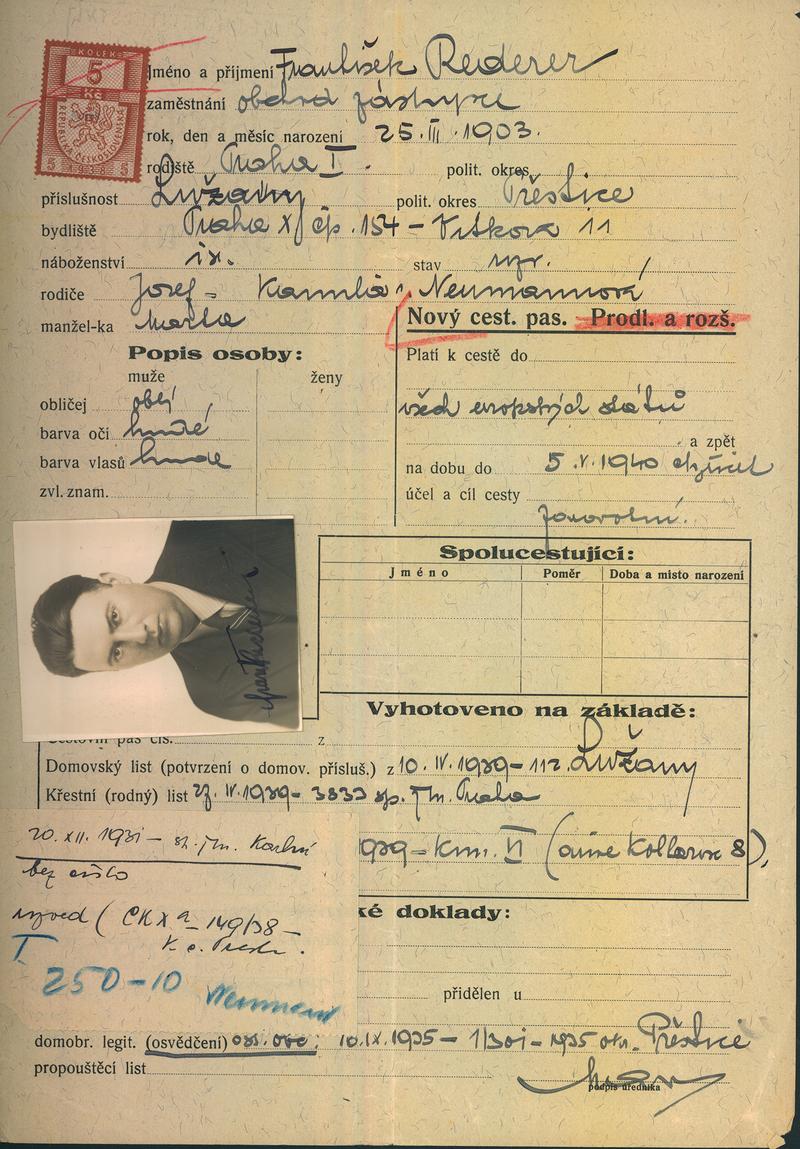 KOLEK
5
Kč
REPUBLIKA ČESKOSLOVENSKÁ
5 1938 5
Jméno a příjmení František Rederer
zaměstnání obchod. zástupce
rok, den a měsíc narození 25. III. 1903.
rodiště Praha I. polit. okres
příslušnost Lužany polit. okres Přeštice
bydliště Praha X čp. 154 – Vítkova 11
náboženství stav
rodiče Josef – Kamila Neumannová
manžel-ka Marta
Nový cest. pas. Prodl. a rozš.
Popis osoby:
muže ženy
obličej oblý
barva očí hnědé
barva vlasů hnědé
zvl. znam.
Platí k cestě do
všech evropských států
a zpět
na dobu do 5. V. 1940
účel a cíl cesty
Spolucestující:
Jméno Poměr Doba a místo narození
Vyhotoveno na základě:
Cestovní pas čís. z
Domovský list (potvrzení o domov. přísluš.) z 10. IV. 1939 – 112. Lužany
Křestní (rodný) list IV. 1939 – 3833 Praha
20. XII. 1931 – Karlín
bez čísla
1939 – Kom. VI
(CK X a – 149/38 –
I
250–10 Neumann
ké doklady:
přidělen u
domobr. legit. (osvědčení) 10. IX. 1935 – 1935 Přeštice
propouštěcí list
podpis úředníka